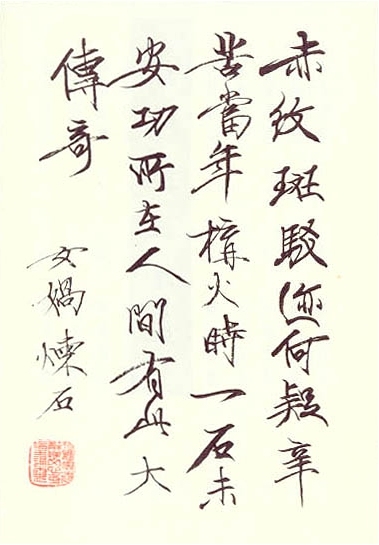 赤紋斑駁迹何疑辛
苦當年構火時一石未
安功所在人間有此大
傳奇
女媧煉石